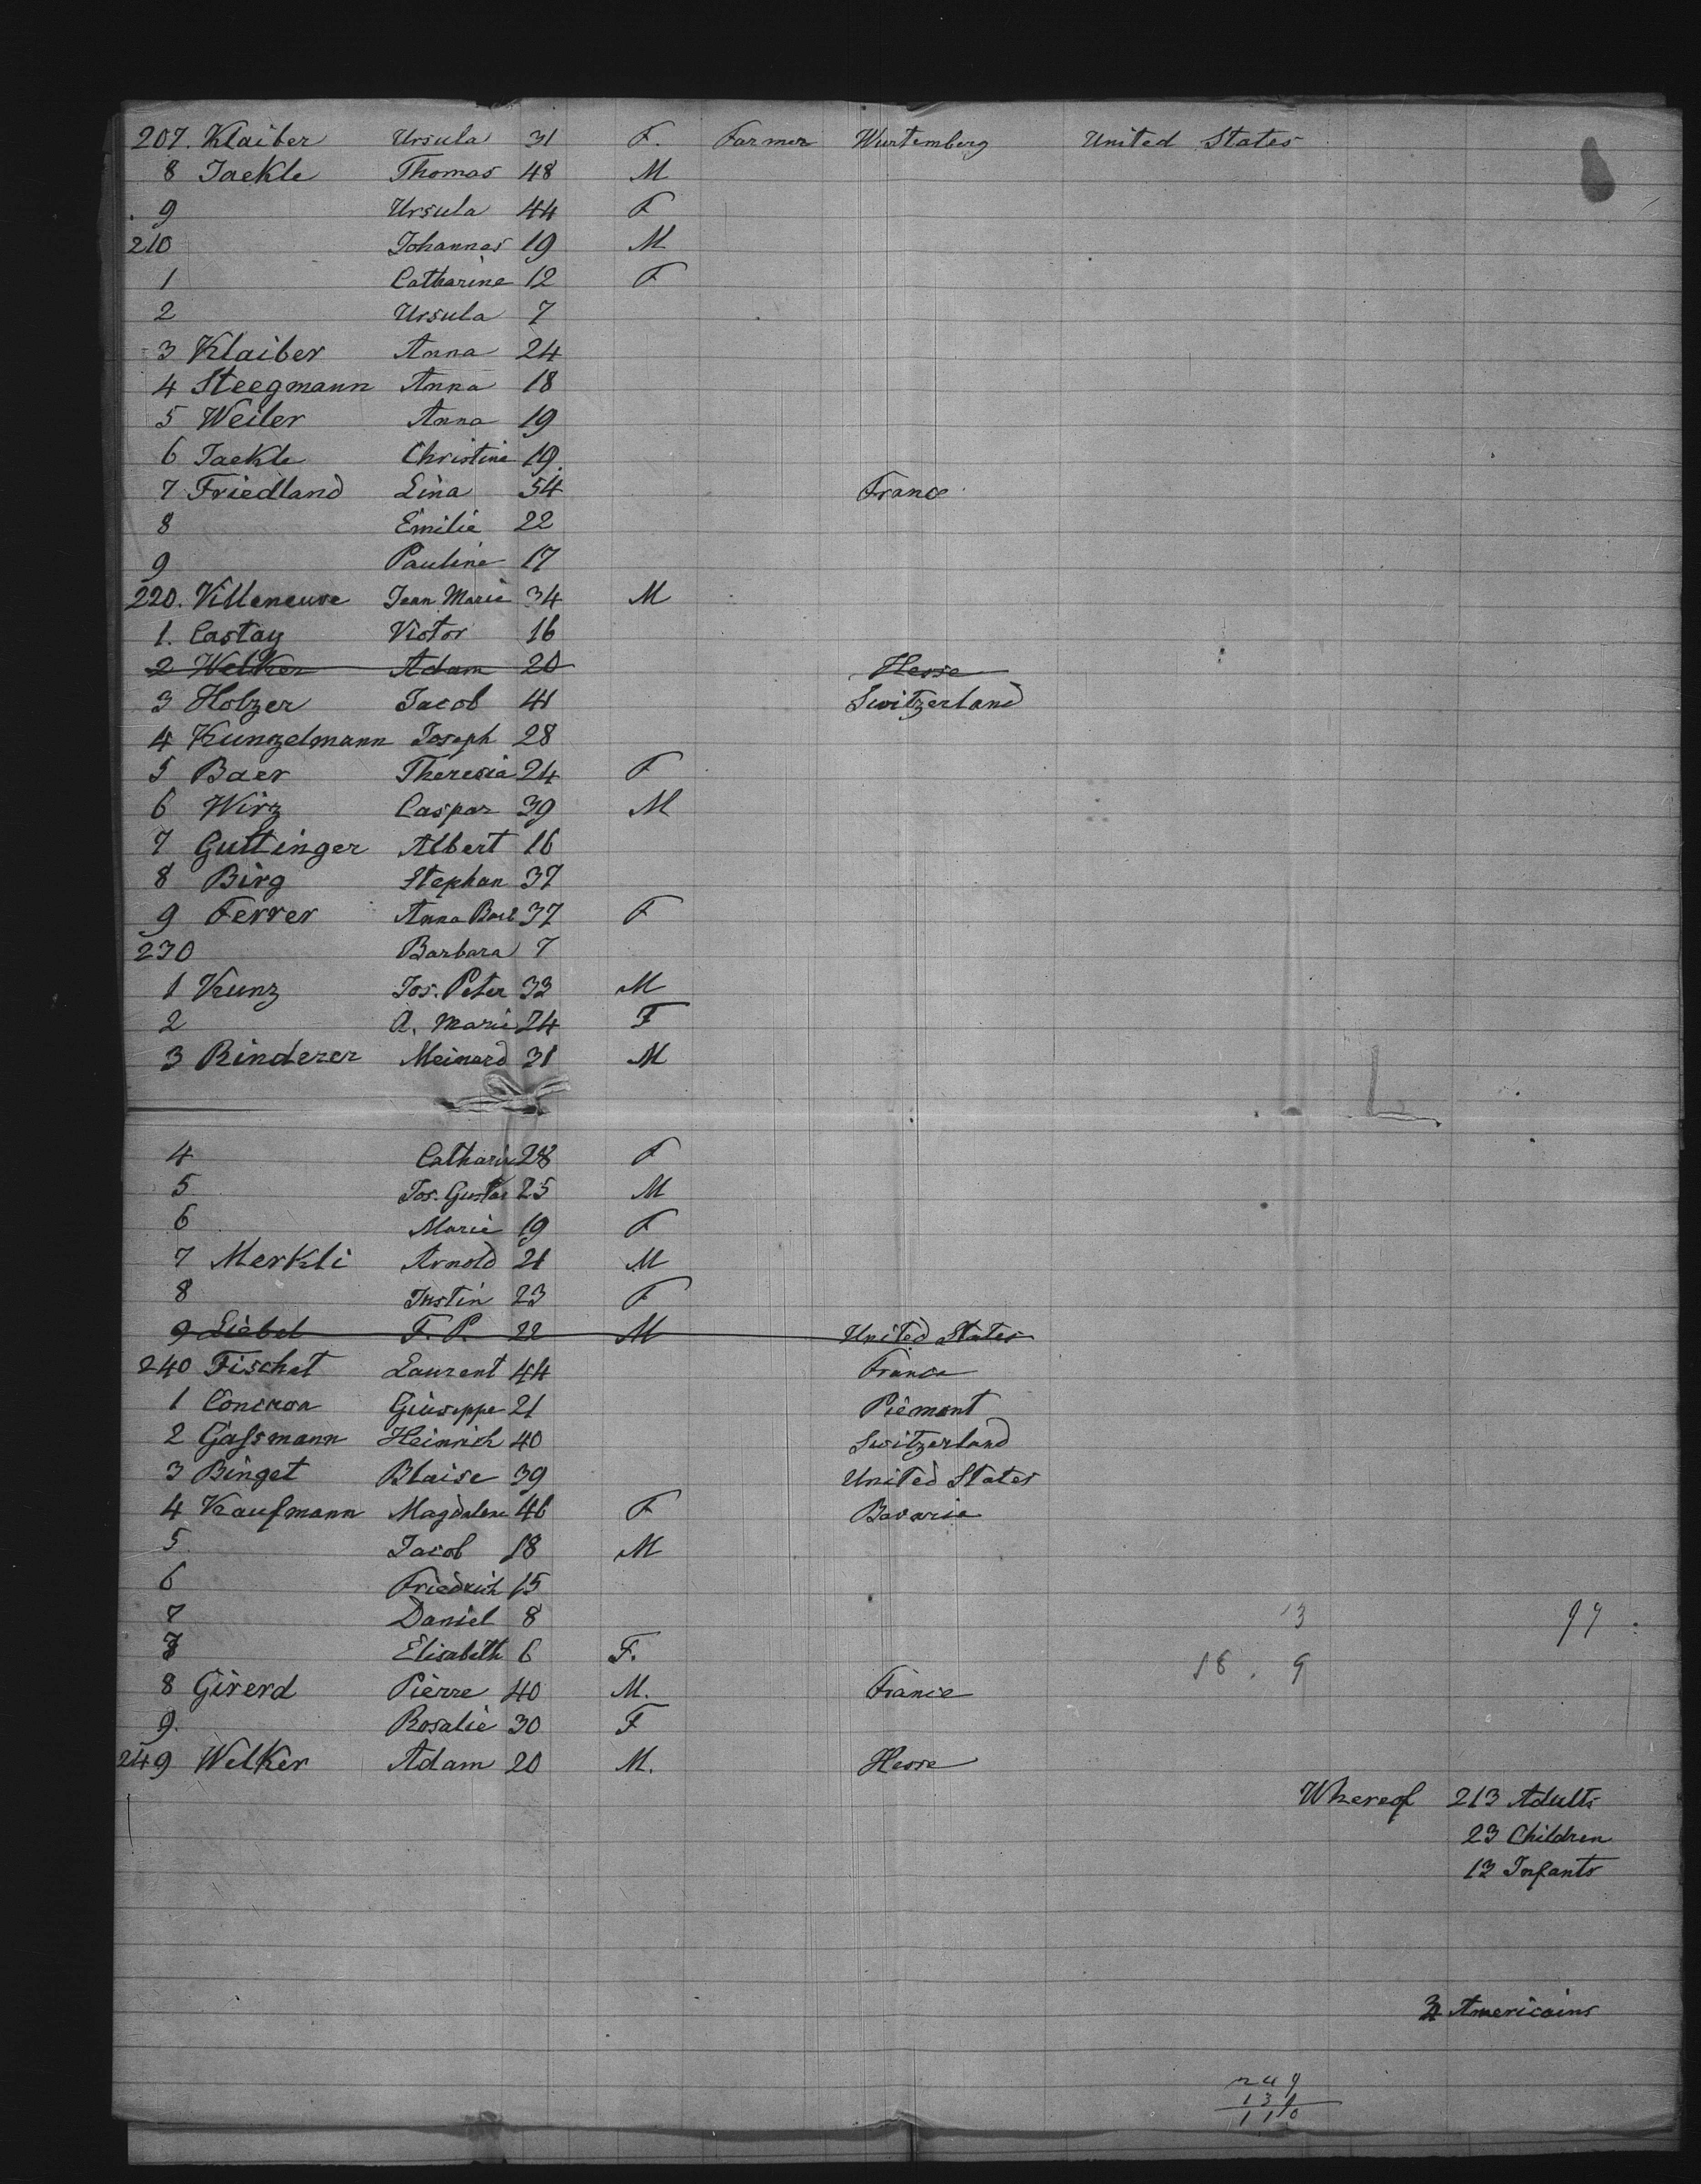 207. Klaiber Ursula 31 F. Farmer Wurtemberg United States
8 Jaekle Thomas 48 M
9 Ursula 44 F
210 Johannes 19 M
1 Catharine 12 F
2 Ursula 7
3 Klaiber Anna 24
4 Steegmann Anna 18
5 Weiler Anna 19
6 Jaekle Christine 19.
7 Friedland Lina 54 France
8 Emilie 22
9 Pauline 17
220. Villeneuve Jean Marie 34 M
1. Castay Victor 16
2 Welker Adam 20 Hesse
3 Holzer Jacob 41 Switzerland
4 Kunzelmann Joseph 28
5 Baer Theresia 24 F
6 Wirz Caspar 39 M
7 Guttinger Albert 16
8 Birg Stephan 37
9 Ferrer Anna Barb 37 F
230 Barbara 7
1 Kunz Jos. Peter 33 M
2 A. Marie 24 F
3 Rinderer Meinard 31 M
4 Catharin 28 F
5 Jos. Gustav 25 M
6 Marie 19 F
7 Merkli Arnold 21 M
8 Justin 23 F
9 Liebel F. P. 22 M United States
240 Fischet Laurent 44 France
1 Giuseppe 21 Piemont
2 Gassmann Heinrich 40 Switzerland
3 Binget Blaise 39 United States
4 Kaufmann Magdalene 46 F Bavaria
5 Jacob 18 M
6 Friedrich 15
7 Daniel 8 13 99
7 Elisabeth 6 F. 18. 9
8 Girerd Pierre 40 M. France
9. Rosalie 30 F
249 Welker Adam 20 M. Hesse
Whereof 213 Adults
23 Children
13 Infants
Americains
249
139
110